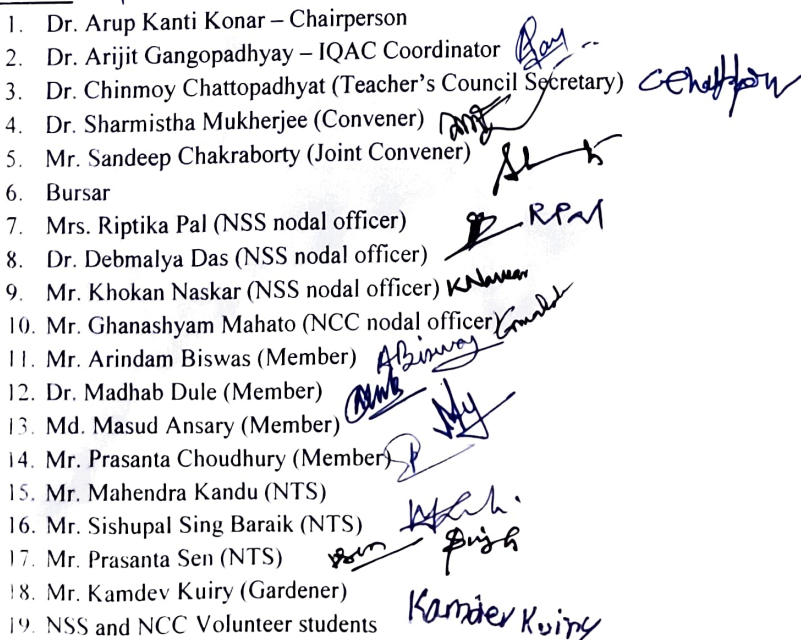 1. Dr. Arup Kanti Konar – Chairperson
2. Dr. Arijit Gangopadhyay – IQAC Coordinator
3. Dr. Chinmoy Chattopadhyat (Teacher's Council Secretary)
4. Dr. Sharmistha Mukherjee (Convener)
5. Mr. Sandeep Chakraborty (Joint Convener)
6. Bursar
7. Mrs. Riptika Pal (NSS nodal officer) RPal
8. Dr. Debmalya Das (NSS nodal officer)
9. Mr. Khokan Naskar (NSS nodal officer) KNaskar
10. Mr. Ghanashyam Mahato (NCC nodal officer)
11. Mr. Arindam Biswas (Member) ABiswas
12. Dr. Madhab Dule (Member)
13. Md. Masud Ansary (Member)
14. Mr. Prasanta Choudhury (Member)
15. Mr. Mahendra Kandu (NTS)
16. Mr. Sishupal Sing Baraik (NTS)
17. Mr. Prasanta Sen (NTS)
18. Mr. Kamdev Kuiry (Gardener)
19. NSS and NCC Volunteer students Kamdev Kuiry